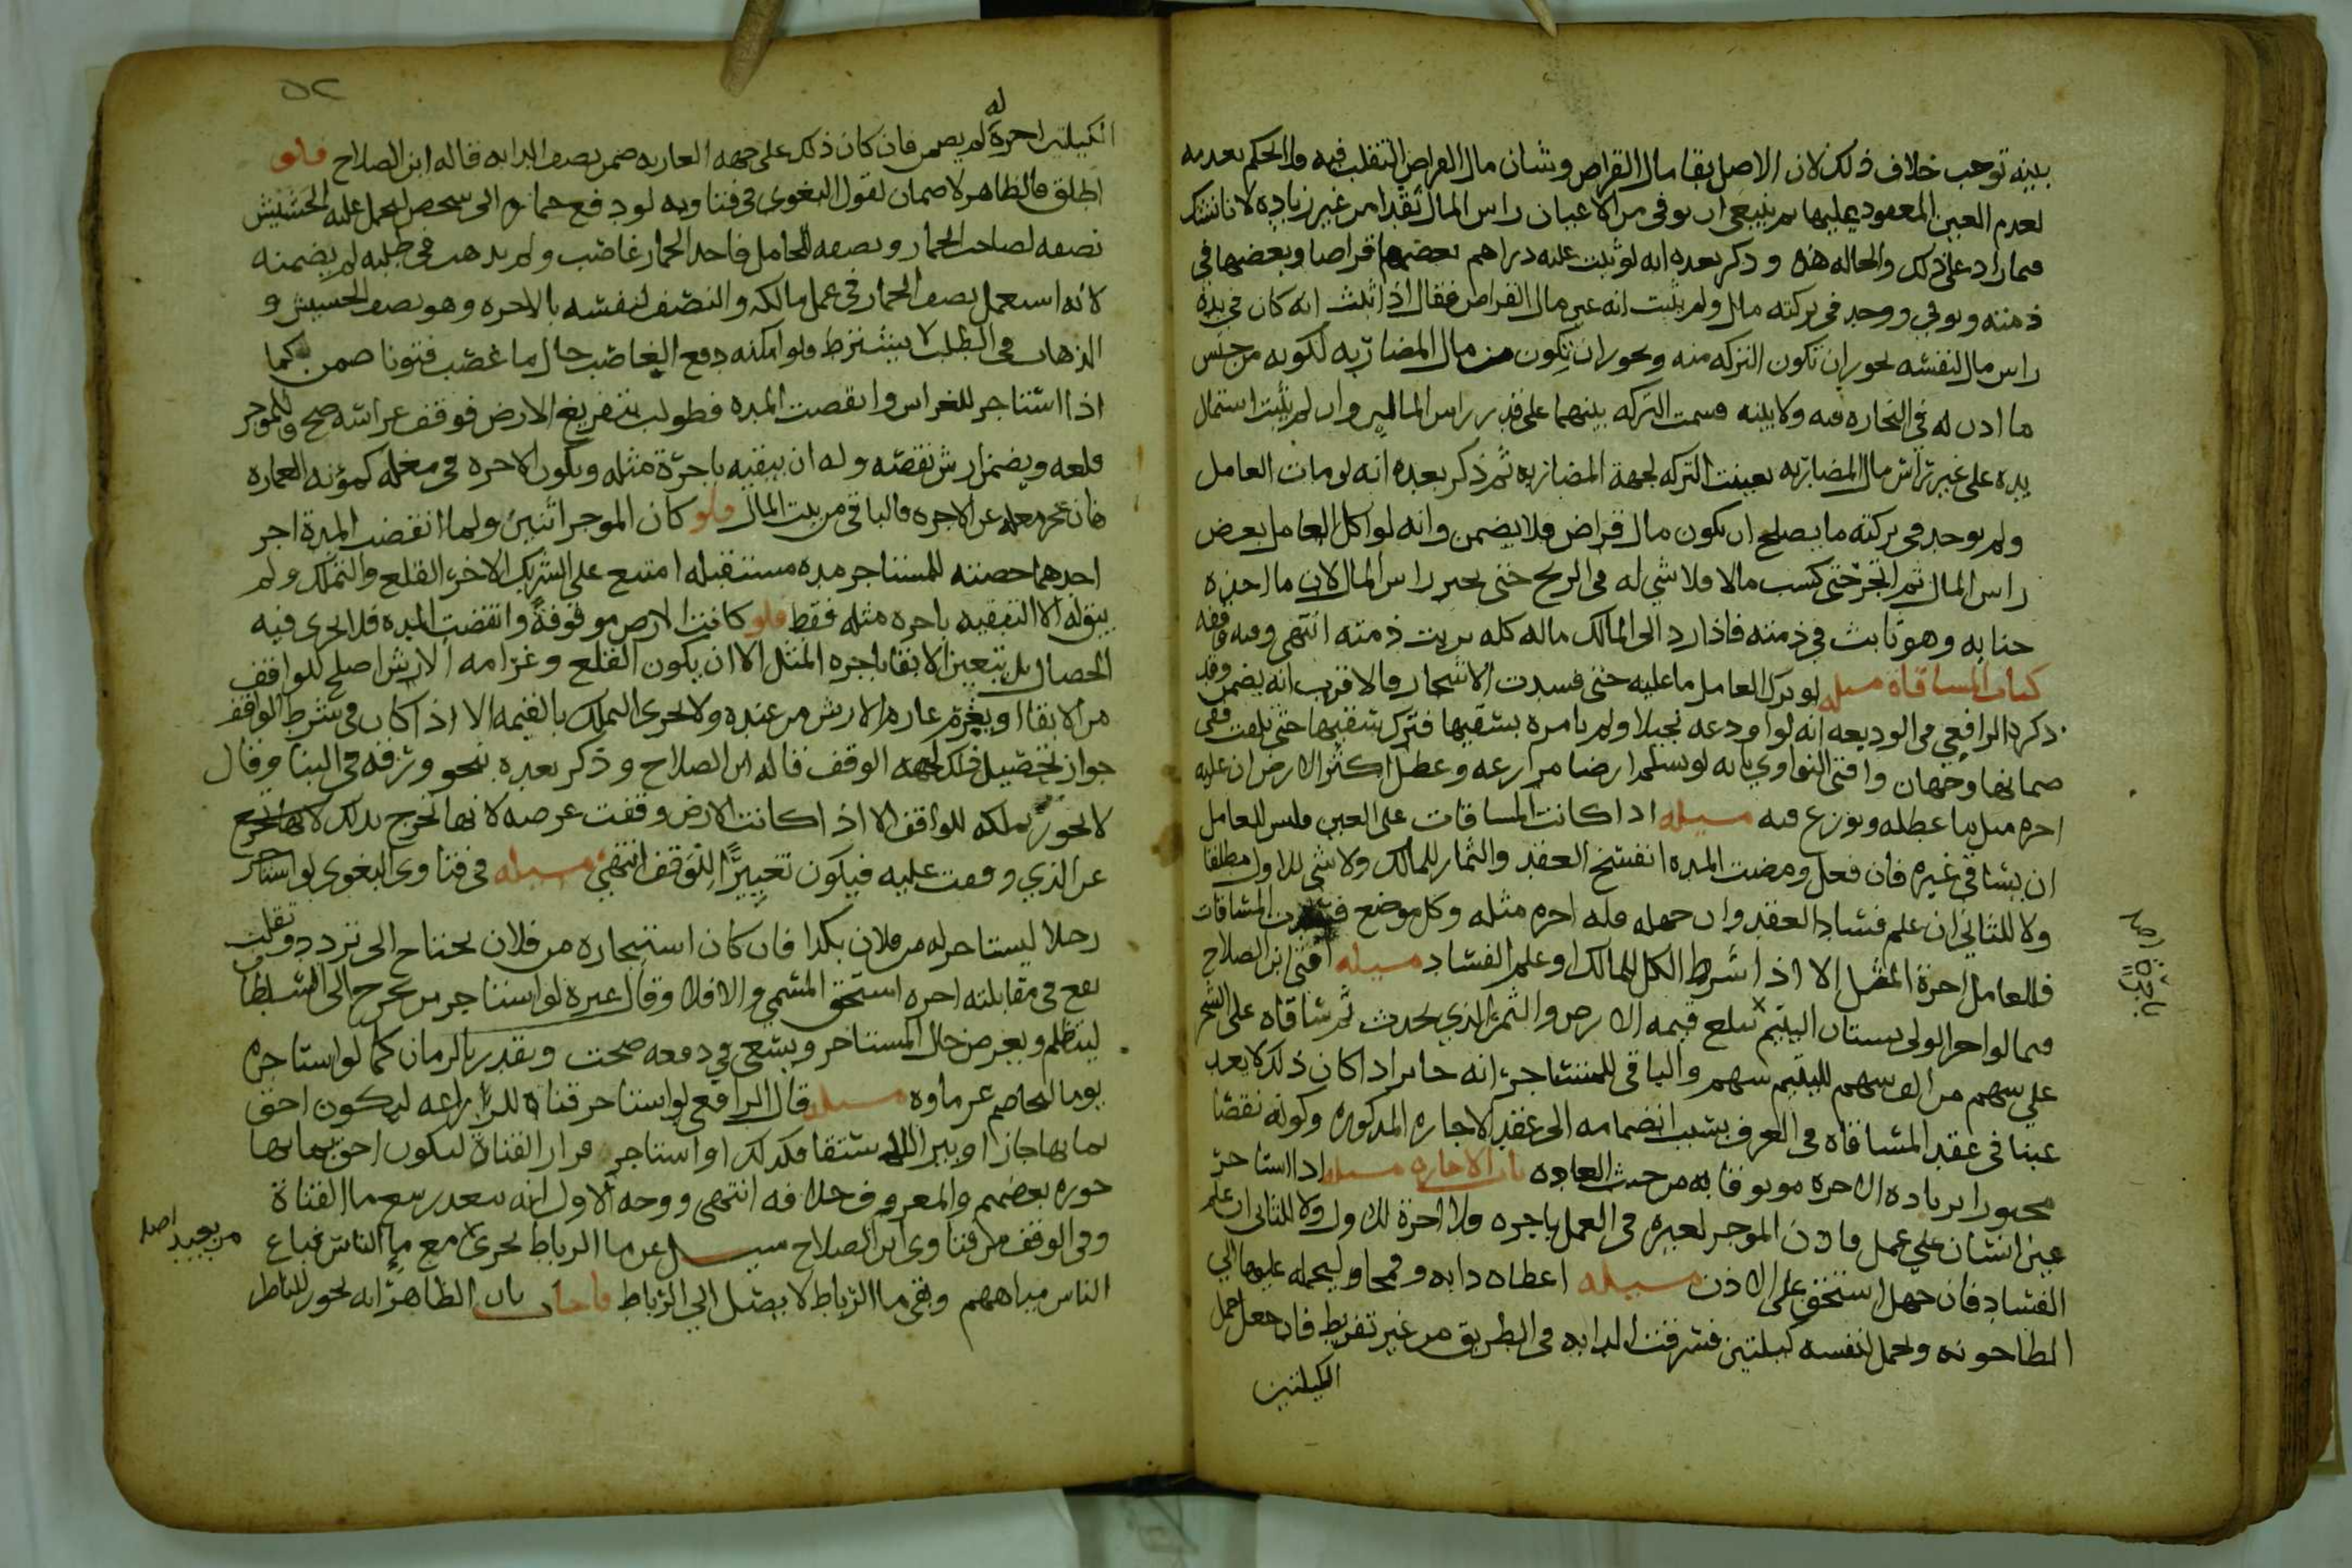 بينه توجب خلاف ذلك لان الاصل بقا مال القراض وشان مال القراض التقلب فيه والحكم بعدمه
لعدم العين المعهود عليها ثم ينبغي ان يوفى من الاعيان راس المال نقدا من غير زيادة لانا نشك
فيما زاد على ذلك والحاله هذه وذكر بعده انه لو ثبت عليه دراهم بعضها قراضا وبعضها في
ذمته وتوفي ووجد في تركته مال ولم يثبت انه عين مال القراض فقال اذا ثبت انه كان في يده
راس مال لنفسه يجوز ان تكون التركه منه ويجوز ان تكون من مال المضاربه لكونه من جنس
ما اذن له في التجاره فيه ولا بينه قسمت التركه بينهما على قدر راس المالين وان لم يثبت استمال
يده على غير راس مال المضاربه تعينت التركه لجهة المضاربه ثم ذكر بعده انه لو مات العامل
ولم يوجد في تركته ما يصلح ان يكون مال قراض فلا يضمن وانه لو اكل العامل بعض
راس المال ثم اتجر حتى كسب مالا فلا شي له في الربح حتى يجبر راس المال لان ما اخذه
حنا به وهو ثابت في ذمته فاذا رد الى المالك ماله كله بريت ذمته انتهى وفيه وقفه
كتاب المساقاة مسله لو ترك العامل ما عليه حتى فسدت الاشجار فالاقرب انه يضمن وقد
ذكر الرافعي في الوديعه انه لو اودعه نخيلا ولم يامره بسقيها فترك سقيها حتى تلفت ففي
ضمانها وجهان وافتى النواوي بانه لو تسلم ارضا مزارعه وعطل اكثر الارض ان عليه
اجره مثل ما عطله ونوزع فيه مسيله اذا كانت المساقات على العين فليس للعامل
ان يساقي غيره فان فعل ومضت المده انفسخ العقد والثمار للمالك ولا شي للاول مطلقا
ولا للثاني ان علم فساد العقد وان جهله فله اجره مثله وكل موضع فسدت المساقات
فللعامل اجرة المثل الا اذا شرط الكل للمالك او علم الفساد مسيله افتى ابن الصلاح
فيما لو اجر الولي بستان اليتيم تبلغ قيمه الارض والثمر الذي يحدث ثم ساقاه على الشجر
علي سهم من الف سهم لليتيم سهم والباقي للمستاجر انه جايز اذا كان ذلك لا يعد
عبنا في عقد المساقاه في العرف بسبب انضمامه الى عقد الاجاره المذكوره وكونه نقصا
مجبورا بزياده الاجره موثوقا به من حيث العاده باب الاجاره مسله اذا استاجر
عين انسان علي عمل فاذن الموجر لغيره في العمل باجره فلا اجرة للاول ولا للثاني ان علم
الفساد فان جهل استحق على الاذن مسيله اعطاه دابه وقمحا وليحمله عليها الي
الطاحونه ويحمل لنفسه كيلتين فسرقت الدابه في الطريق من غير تفريط فان جعل حمل
الكيلتين
٥٢
الكيلتين اجرة له لم يضمن فان كان ذلك على جهه العاريه ضمن نصف الدابه قاله ابن الصلاح فلو
اطلق فالظاهر لا ضمان لقول البغوي في فتاويه لو دفع حماره الى شخص ليحمل عليه الحشيش
نصفه لصاحب الحمار ونصفه للحامل فاخذ الحمار غاصب ولم يذهب في طلبه لم يضمنه
لانه استعمل نصف الحمار في عمل مالكه والنصف لنفسه بالاجره وهو نصف الحشيش و
الذهاب في الطلب لا يشترط ولو امكنه دفع الغاصب حال ما غصب فتونا ضمن كما
اذا استاجر للغراس وانقضت المده فطولب بتفريغ الارض فوقف غراسه صح وللموجر
قلعه ويضمن ارش نقصه وله ان يبقيه باجرة مثله وتكون الاجره في مغله كمؤنه العماره
فان عجز مغله عن الاجره فالباقي من بيت المال فلو كان الموجر اثنين ولما انقضت المدة اجر
احدهما حصته للمستاجر مده مستقبله امتنع على الشريك الاخر القلع والتملك ولم
يبق له الا التبقيه باجره مثله فقط فلو كانت الارض موقوفة وانقضت المده فلا يجرى فيه
الخصال بل يتعين الابقا باجره المثل الا ان يكون القلع وغرامه الارش اصلح للواقف
من الابقا او يغرم عاره الارش من عنده ولا يجرى التملك بالقيمه الا اذا كان في شرط الواقف
جواز تحصيل ذلك لجهه الوقف قاله ابن الصلاح وذكر بعده نحو ورقه في البنا وقال
لا يجوز تملكه للواقف الا اذا كانت الارض وقفت عرصه لانها تخرج بذلك لانها تخرج
عن الذي وقفت عليه فيكون تغييرًا للوقف انتهى مسيله في فتاوى البغوي لو استاجر
رجلا ليستاجر له من فلان بكذا فان كان استيجاره من فلان يحتاج الى تردد وتعلت
تقع في مقابلته اجره استحق المسمى والا فلا وقال غيره لو استاجر من يخرج الى السلطان
ليتظلم ويعرض حال المستاجر ويسعى في دفعه صحت ويقدر بالزمان كما لو استاجره
يوما ليخاصم غرماوه مسيله قال الرافعي لو استاجر قناة للزراعه ليكون احق
بمايها جاز او بير الله ستقا فكذلك او استاجر قرار القناة ليكون احق بمايها
جوزه بعضهم والمعروف خلافه انتهى ووجه الاول انه يتعذر بيع ما القناة
وفي الوقف من فتاوى ابن الصلاح سيل عن ما الرباط يجرى مع ما الناس فباع
الناس مياههم وبقى ما الرباط لا يصل الي الرباط فاجاب بان الظاهر انه يجوز للناظر